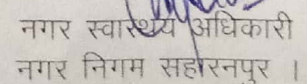 नगर स्वास्थ्य अधिकारी
नगर निगम सहारनपुर ।